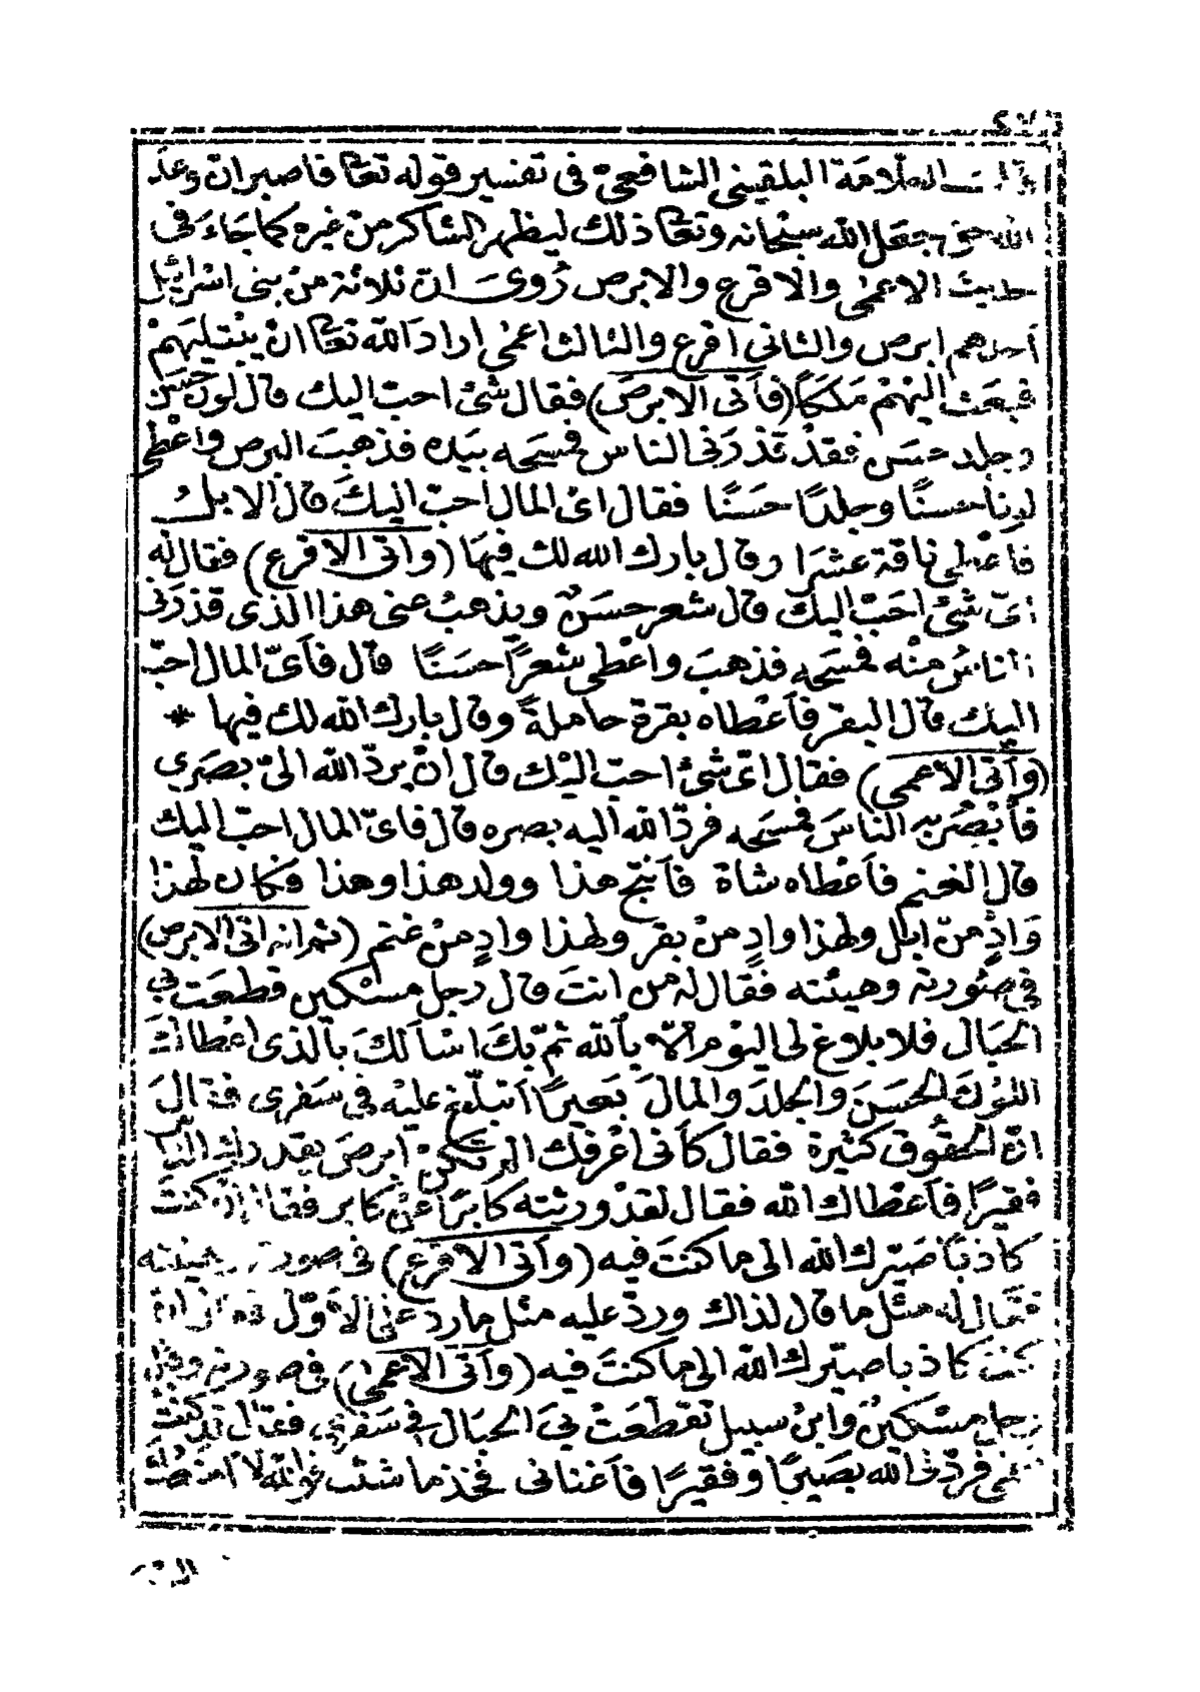 العلّامَة البلقينى الشافعىّ فى تفسير قوله تعا فاصبر ان وعد
الله حق جعل الله سبحانه وتعا ذلك ليظهر الشاكر من غيره كما جَاءَ فى
حديث الاعمٰى والاقرع والابرص رُوىَ انّ ثلاثة من بنى اسرائيل
أحدهم ابرص والثانى اقرع والثالث اعمٰى ارادَ الله تعا انْ يبْتليَهمْ
فبعَث اليْهمْ مَلكًا (فأتى الابرصَ) فقال شئ احبّ اليك قال لون حسَن
وجلد حسَن فقدْ قذرَنى الناس فمسَحه بيَده فذهبَ البرص واعْطى
لونا حسنًا وجلدًا حسَنًا فقال اىّ المال احبّ اليكَ قال الابل
فاعْطى ناقة عشرَا وقال بارك الله لك فيهَا (وأتى الاقرع) فقال له
اىّ شئ احَبّ اليكَ قال شعر حسَنٌ ويذهبُ عنى هذا الذى قذرَنى
الناسُ منْه فمسَحه فذهبَ واعْطى شعرًا حسَنًا قال فأىّ المال احبّ
اليك قال البقر فأعْطاه بقرة حاملةً وقال بارك الله لك فيها *
(وأتى الاعمى) فقال اىّ شئ احبّ اليْك قال انْ يردّ الله الىّ بصَرى
فأبْصُر به الناسَ فمسَحه فردّ الله اليه بصره قال فاىّ المال احبّ اليك
قال الغنم فأعْطاه شاة فأنتج هذا وولد هذا وهذا فكان لهذا
وَادٍ منْ ابل ولهذا وادٍ منْ بقر ولهذا وادٍ منْ غنم (ثم انه اتى الابرص)
فى صُورته وهيئته فقال له من انتَ قال رجل مسْكين قطعَت بى
الحبَال فلا بلاغ لى اليوْم الّا بالله ثمّ بكَ اسْألكَ بالّذى اعْطاك
اللوْنَ الحسَن والجلدَ والمالَ بَعيرًا اتبلّغ عليْه فى سَفرى فقالَ
انّ الحقوق كثيرة فقال كأنى اعْرفك الم تكنْ ابرصَ يقذرك النّاس
فقيرًا فأعْطاك الله فقال لقدْ ورثته كابرًا عنْ كابر فقال انْ كنتَ
كاذبًا صَيّرك الله الى ما كنتَ فيه (وأتى الاقرع) فى صورته وهيئته
فقال له مثل ما قال لذاك وردّ عليه مثل ما ردّ عنى الأوّل فقال ان
كنت كاذبا صيّرك الله الى ما كنتَ فيه (وأتى الاعمى) فى صورته وقال
رجل مسْكينٌ وابنُ سبيل تقطعَتْ بىَ الحبَال فى سَفرى فقال قد كنتُ
فردّ الله بصَرى وفقيرًا فأغنانى فخذ ما شئت فوالله لا